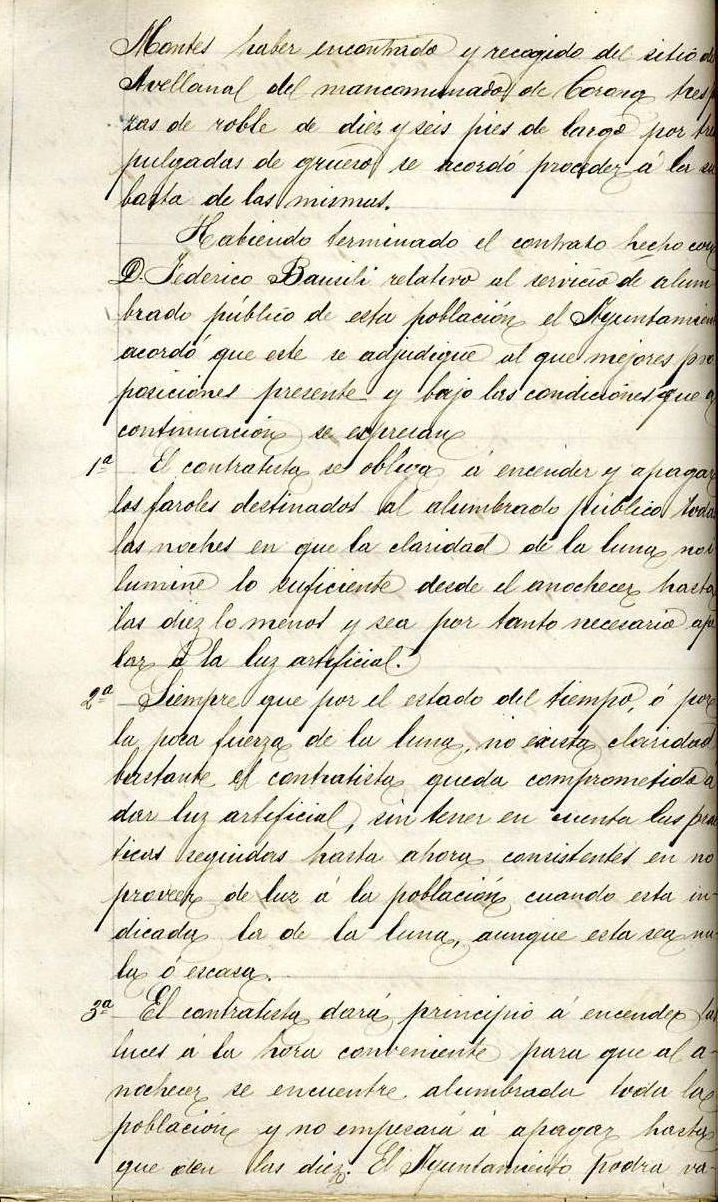 Montes haber encontrado y recogido del sitio de
Avellanal del mancomunado de tres
zas de roble de diez y seis pies de largo por tre
pulgadas de grueso se acordó proceder á la su
basta de las mismas.
Habiendo terminado el contrato hecho con
D. Federico Bausili relativo al servicio de alum
brado público de esta población el Ayuntamien
acordó que este se adjudique al que mejores pro
posiciones presente y bajo las condiciones que a
continuación se expresan
1ª El contratista se obliga á encender y apagar
los faroles destinados al alumbrado público toda
las noches en que la claridad de la luna no i
lumine lo suficiente desde el anochecer hasta
las diez lo menos y sea por tanto necesario ape
lar á la luz artificial.
2ª Siempre que por el estado del tiempo, ó por
la poca fuerza de la luna, no exista claridad
bastante el contratista queda comprometido á
dar luz artificial, sin tener en cuenta las prac
ticas seguidas hasta ahora consistentes en no
proveer de luz á la población cuando esta in-
dicada la de la luna, aunque esta sea nu-
la ó escasa.
3ª El contratista dará principio á encender las
luces á la hora conveniente para que al a-
nochecer se encuentre alumbrada toda la
población y no empesará á apagar hasta
que den las diez. El Ayuntamiento podra va-